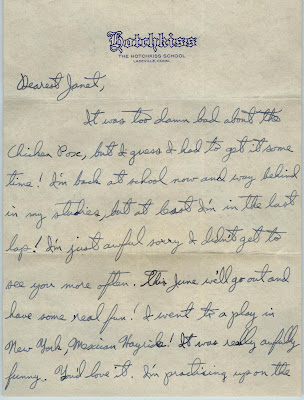 Hotchkiss
THE HOTCHKISS SCHOOL
LAKEVILLE, CONN.
Dearest Janet,
It was too damn bad about the
Chicken Pox, but I guess I had to get it some
time! I'm back at school now and way behind
in my studies, but at least I'm in the last
lap! I'm just awful sorry I didn't get to
see you more often. This June we'll go out and
have some real fun! I went to a play in
New York, Mexican Hayride! It was really awfully
funny. You'd love it. I'm practising up on the